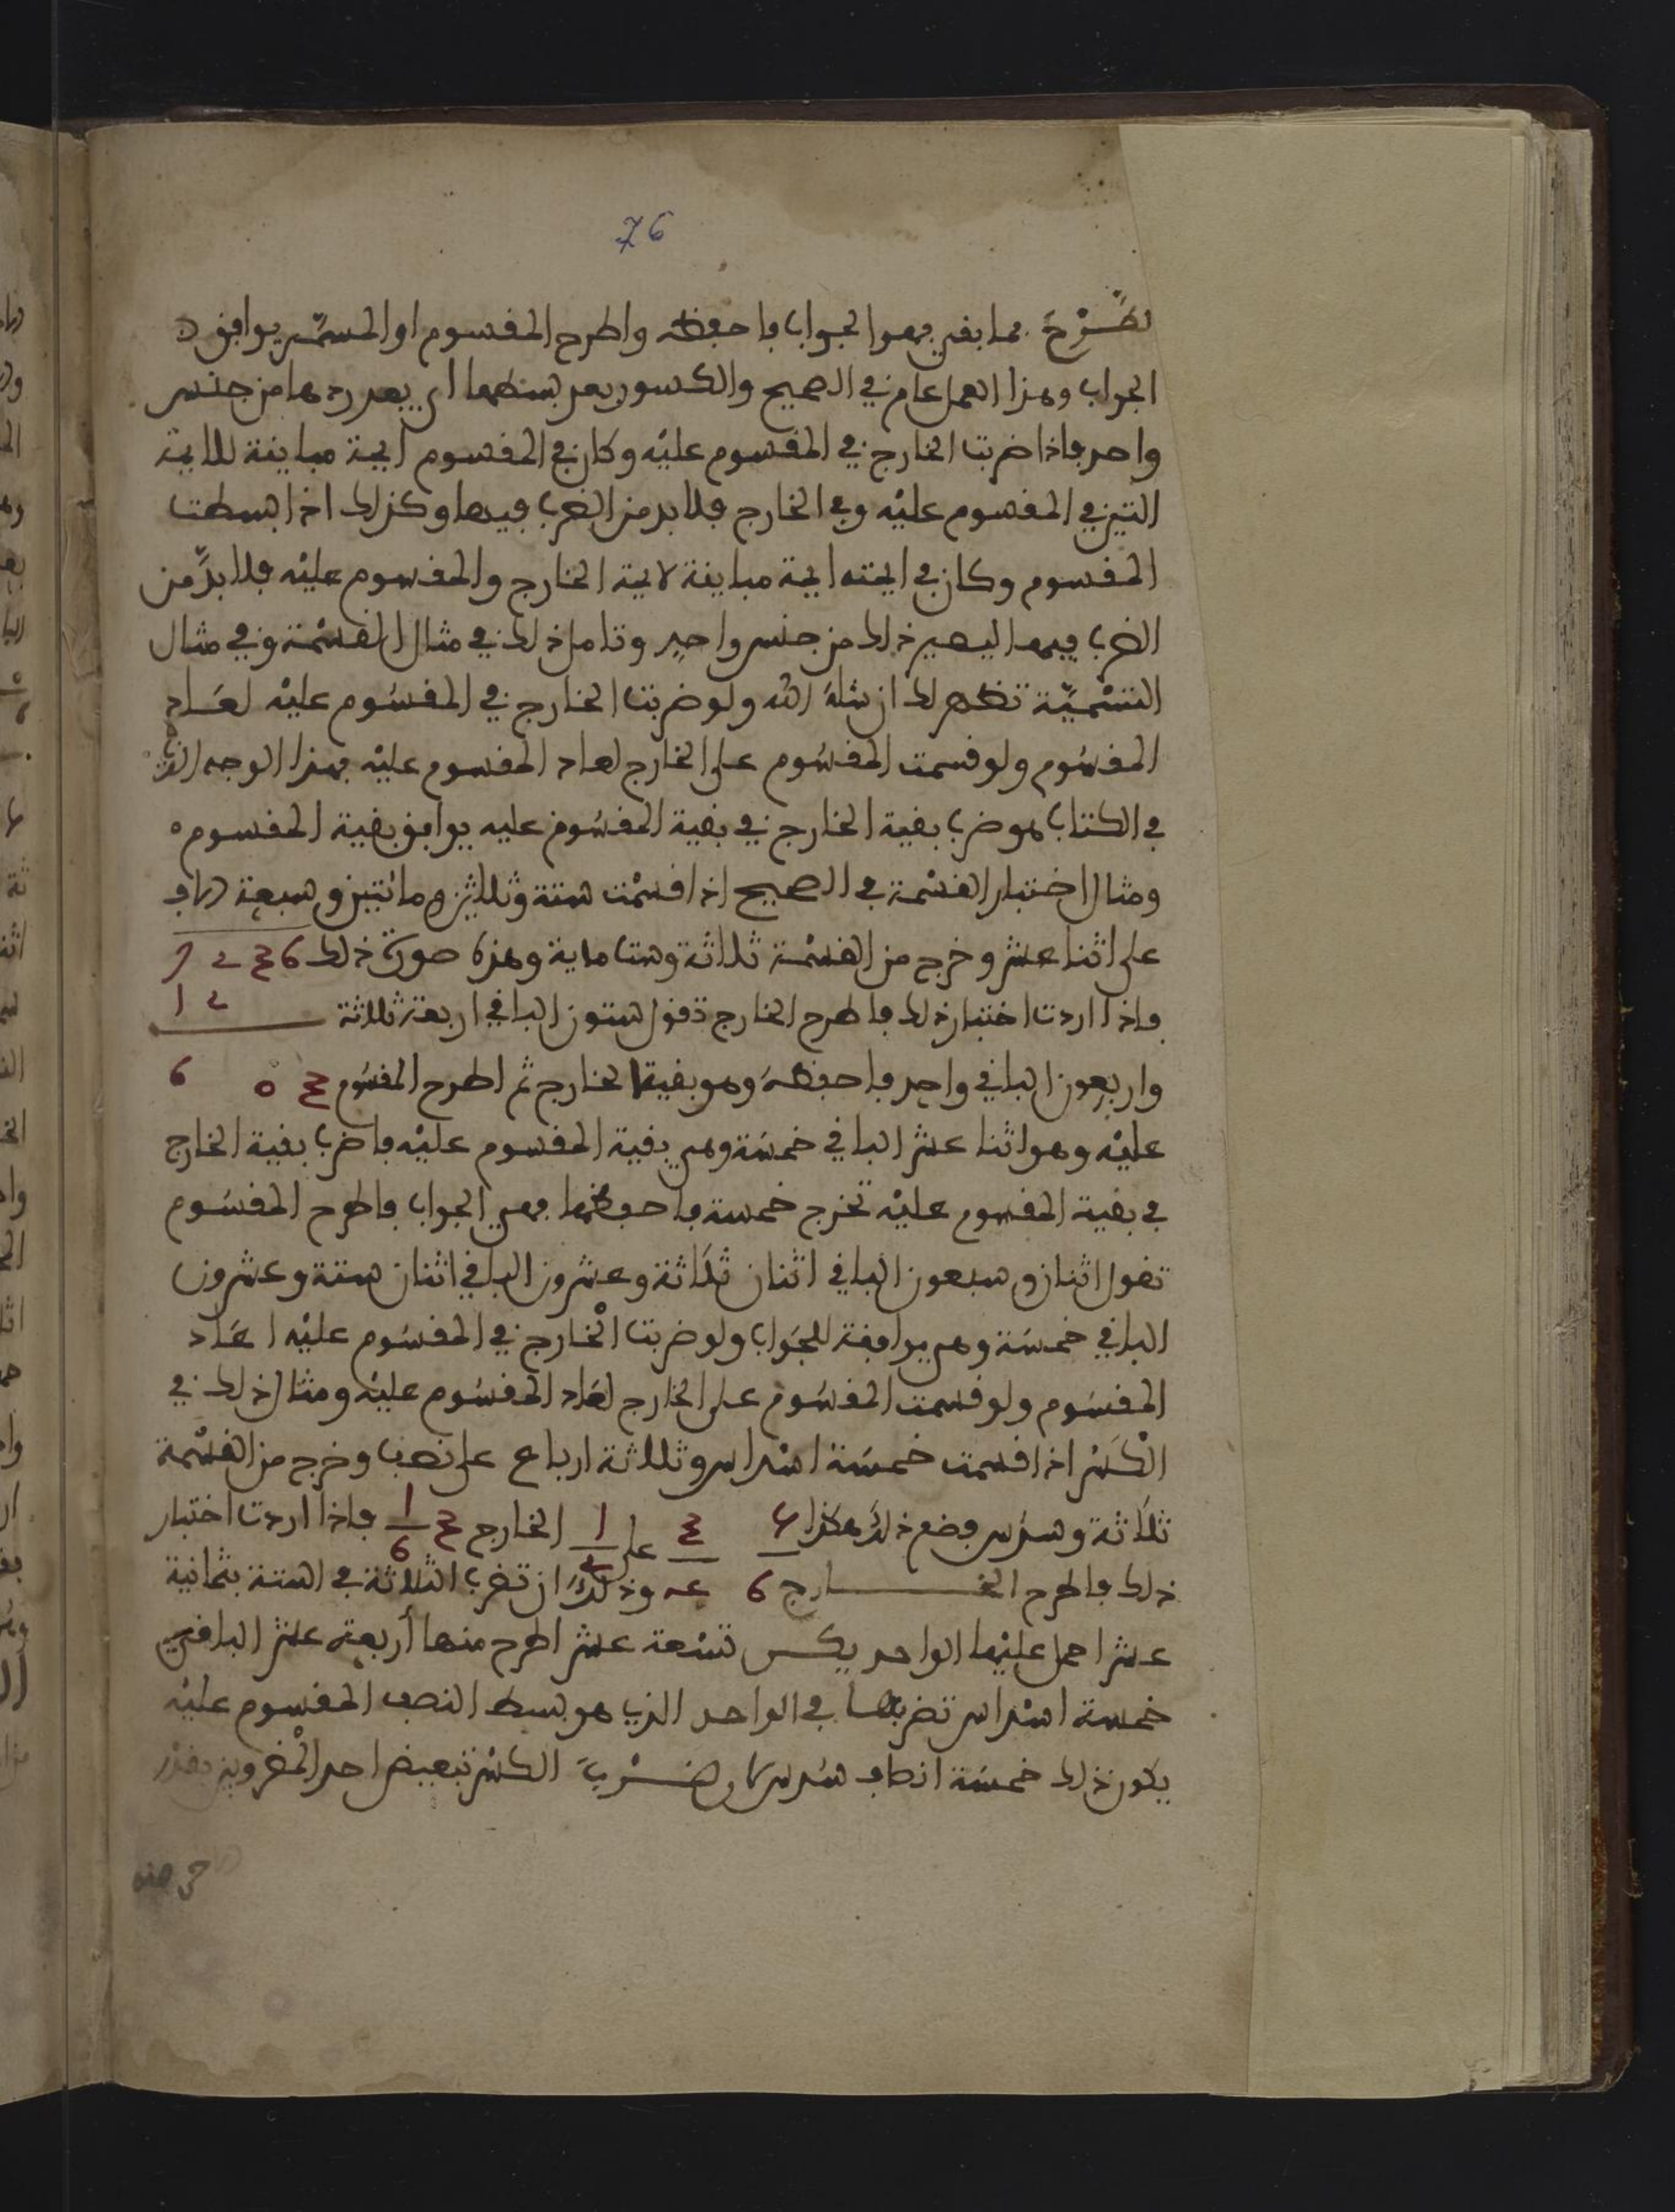 76
تطرح فما بقي فهو الجواب فاحفظه واطرح المقسوم او المسمى يوافق
الجواب وهذا العمل عام في الصحيح والكسور بعد بسطهما اي بعد ردهما من جنس
واحد فاذا ضربت الخارج في المقسوم عليه وكان في المقسوم ايمة مباينة للايمة
التي في المقسوم عليه وفي الخارج فلا بد من الضرب فيها وكذلك اذا بسطت
المقسوم وكان في ايمته ايمة مباينة لايمة الخارج والمقسوم عليه فلا بدّ من
الضرب فيها ليصير ذلك من جنس واحد وتامل ذلك في مثال القسمة وفي مثال
التسمية تظهر لك ان شاء الله ولو ضربت الخارج في المقسوم عليه لعاد
المقسوم ولو قسمت المقسوم على الخارج لعاد المقسوم عليه بهذا الوجه الذي
في الكتاب هو ضرب بقية الخارج في بقية المقسوم عليه يوافق بقية المقسوم
ومثال اختبار القسمة في الصحيح اذا قسمت ستة وثلاثين ومائتين وسبعة الاف
على اثنا عشر وخرج من القسمة ثلاثة وستماية وهذه صورة ذلك 6 3 2 7
فاذا اردت اختبار ذلك فاطرح الخارج تقول ستون الباقي اربعة ثلاثة 2 1
واربعون الباقي واحد فاحفظه وهو بقية الخارج ثم اطرح المقسوم 3 0 6
عليه وهو اثنا عشر الباقي خمسة وهي بقية المقسوم عليه فاضرب بقية الخارج
في بقية المقسوم عليه تخرج خمسة فاحفظها فهي الجواب فاطرح المقسوم
تقول اثنان وسبعون الباقي اثنان ثلاثة وعشرون الباقي اثنان ستة وعشرون
الباقي خمسة وهي موافقة للجواب ولو ضربت الخارج في المقسوم عليه لعاد
المقسوم ولو قسمت المقسوم على الخارج لعاد المقسوم عليه ومثال ذلك في
الكسر اذا قسمت خمسة اسداس وثلاثة ارباع على نصف وخرج من القسمة
ثلاثة وسدس فضع ذلك هكذا 5/6 3/4 على 1/2 الخارج 3 1/6 فاذا اردت اختبار
ذلك فاطرح الخارج وذلك ان تضرب الثلاثة في الستة بثمانية
عشر احمل عليها الواحد يكن تسعة عشر اطرح منها أربعة عشر الباقي
خمسة اسداس تضربها في الواحد الذي هو بسط النصف المقسوم عليه
يكون ذلك خمسة انصاف سدس لان ضرب الكسر تبعيض احد المضروبين بقدر